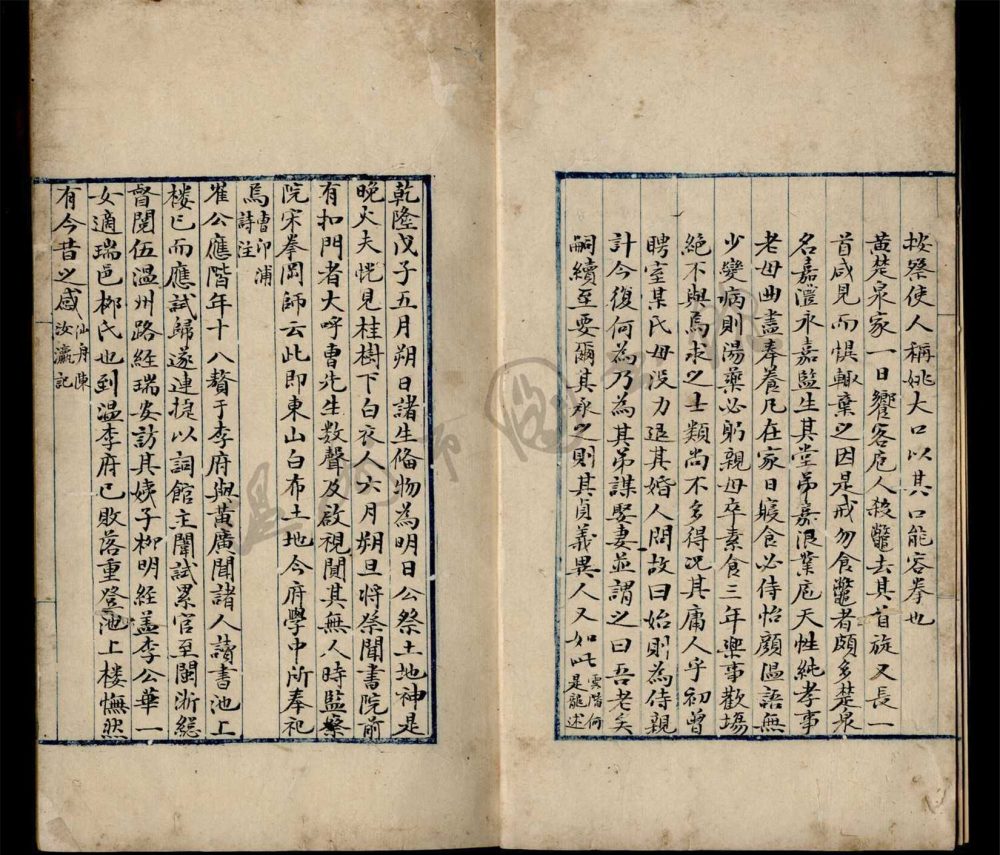 按察使人稱姚大口以其口能容拳也
黃楚泉家一日饗客庖人殺鼈去其首旋又長一
首咸見而惧輙棄之因是戒勿食鼈者頗多楚泉
名嘉澧永嘉監生其堂弟嘉浪業庖天性純孝事
老母曲盡奉養凡在家日寢食必侍怡顏温語無
少變病則湯藥必躬親母卒素食三年樂事歡塲
絶不與焉求之士類尚不多得况其庸人乎初曾
聘室某氏母没力退其婚人問故曰始則為侍親
計今復何為乃為其弟謀娶妻並謂之曰吾老矣
嗣續至要爾其承之則其貞義異人又如此雲階何是龍述
乾隆戊子五月朔日諸生偹物為明日公祭土地神是
晚火夫恍見桂樹下白衣人六月朔旦將祭聞書院前
有扣門者大呼曹先生数聲及啟視闃其無人時監察
院宋拳岡師云此即東山白布土地今府學中所奉祀
焉曹印浦詩注
崔公應階年十八贅于李府與黃廣聞諸人讀書池上
楼已而應試歸遂連捷以詞館主闈試累官至閩浙緫
督閱伍温州路經瑞安訪其姨子栁明經盖李公華一
女適瑞邑栁氏也到温李府已敗落重登池上楼憮然
有今昔之感汕舟陳汝瀛記